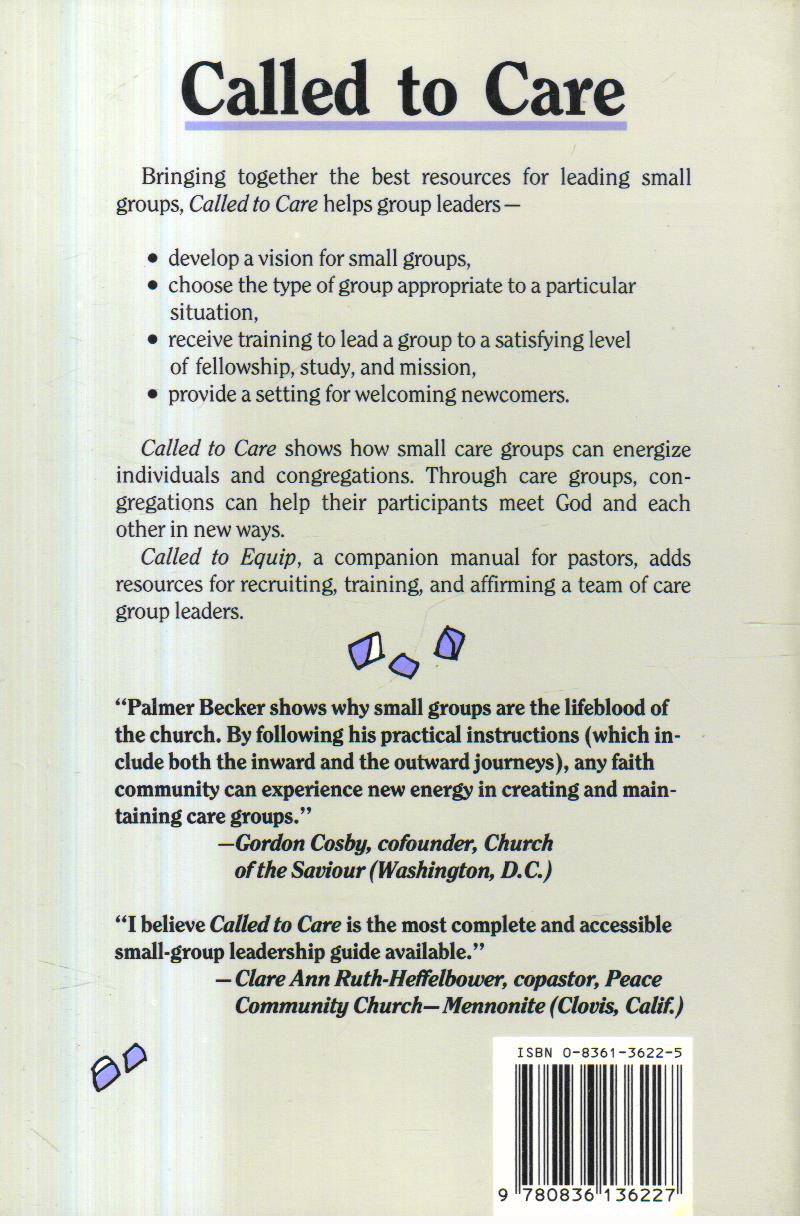 Called to Care
Bringing together the best resources for leading small
groups, Called to Care helps group leaders—
• develop a vision for small groups,
• choose the type of group appropriate to a particular
situation,
• receive training to lead a group to a satisfying level
of fellowship, study, and mission,
• provide a setting for welcoming newcomers.
Called to Care shows how small care groups can energize
individuals and congregations. Through care groups, con-
gregations can help their participants meet God and each
other in new ways.
Called to Equip, a companion manual for pastors, adds
resources for recruiting, training, and affirming a team of care
group leaders.
“Palmer Becker shows why small groups are the lifeblood of
the church. By following his practical instructions (which in-
clude both the inward and the outward journeys), any faith
community can experience new energy in creating and main-
taining care groups.”
—Gordon Cosby, cofounder, Church
of the Saviour (Washington, D.C.)
“I believe Called to Care is the most complete and accessible
small-group leadership guide available.”
—Clare Ann Ruth-Heffelbower, copastor, Peace
Community Church—Mennonite (Clovis, Calif.)
ISBN 0-8361-3622-5
9 780836 136227